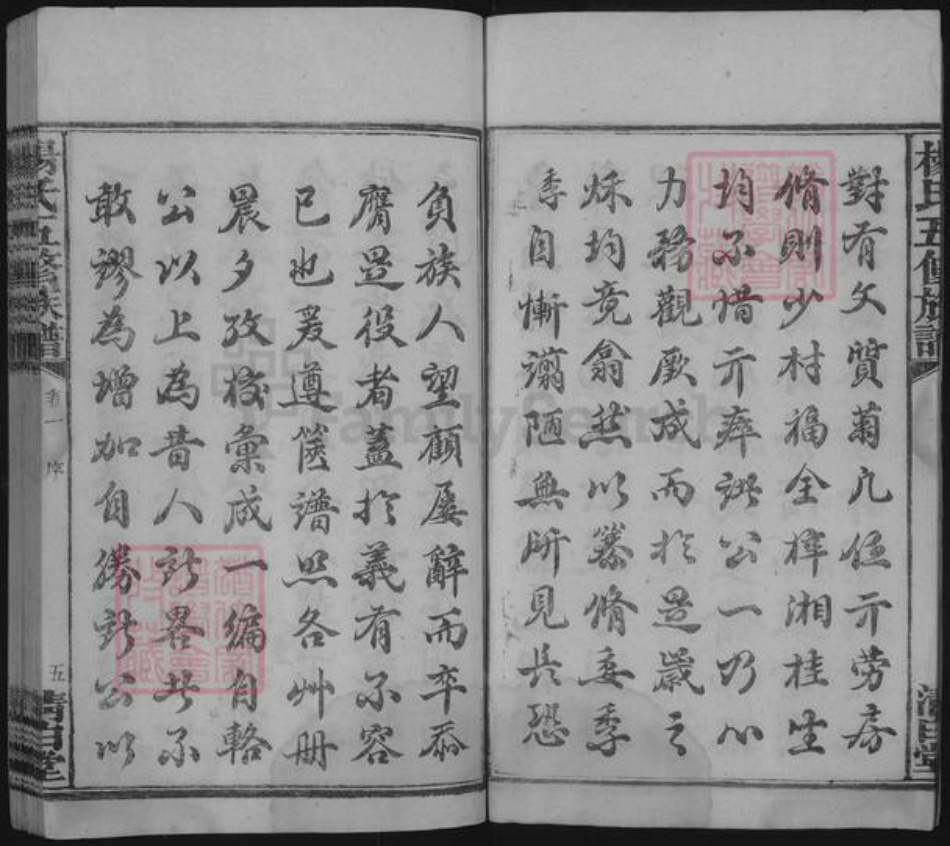 楊氏五修族譜
清白堂
對有文質菊凡伍亓勞房
脩則少村福全梓湘桂生
均不惜亓瘁諸公一乃心
力務觀厥成而扵是歲之
秌均竟翕然以纂脩委季
季自慚謭陋無所見長恐
負族人望顧屢辭而卒忝
膺是役者蓋扵義有不容
已也爰遵舊譜照各艸冊
晨夕攷校彙成一編自輅
公以上為昔人所畧者不
敢謬為增加自勝公以
楊氏五修族譜
卷一
序
五
清白堂
FamilySearch